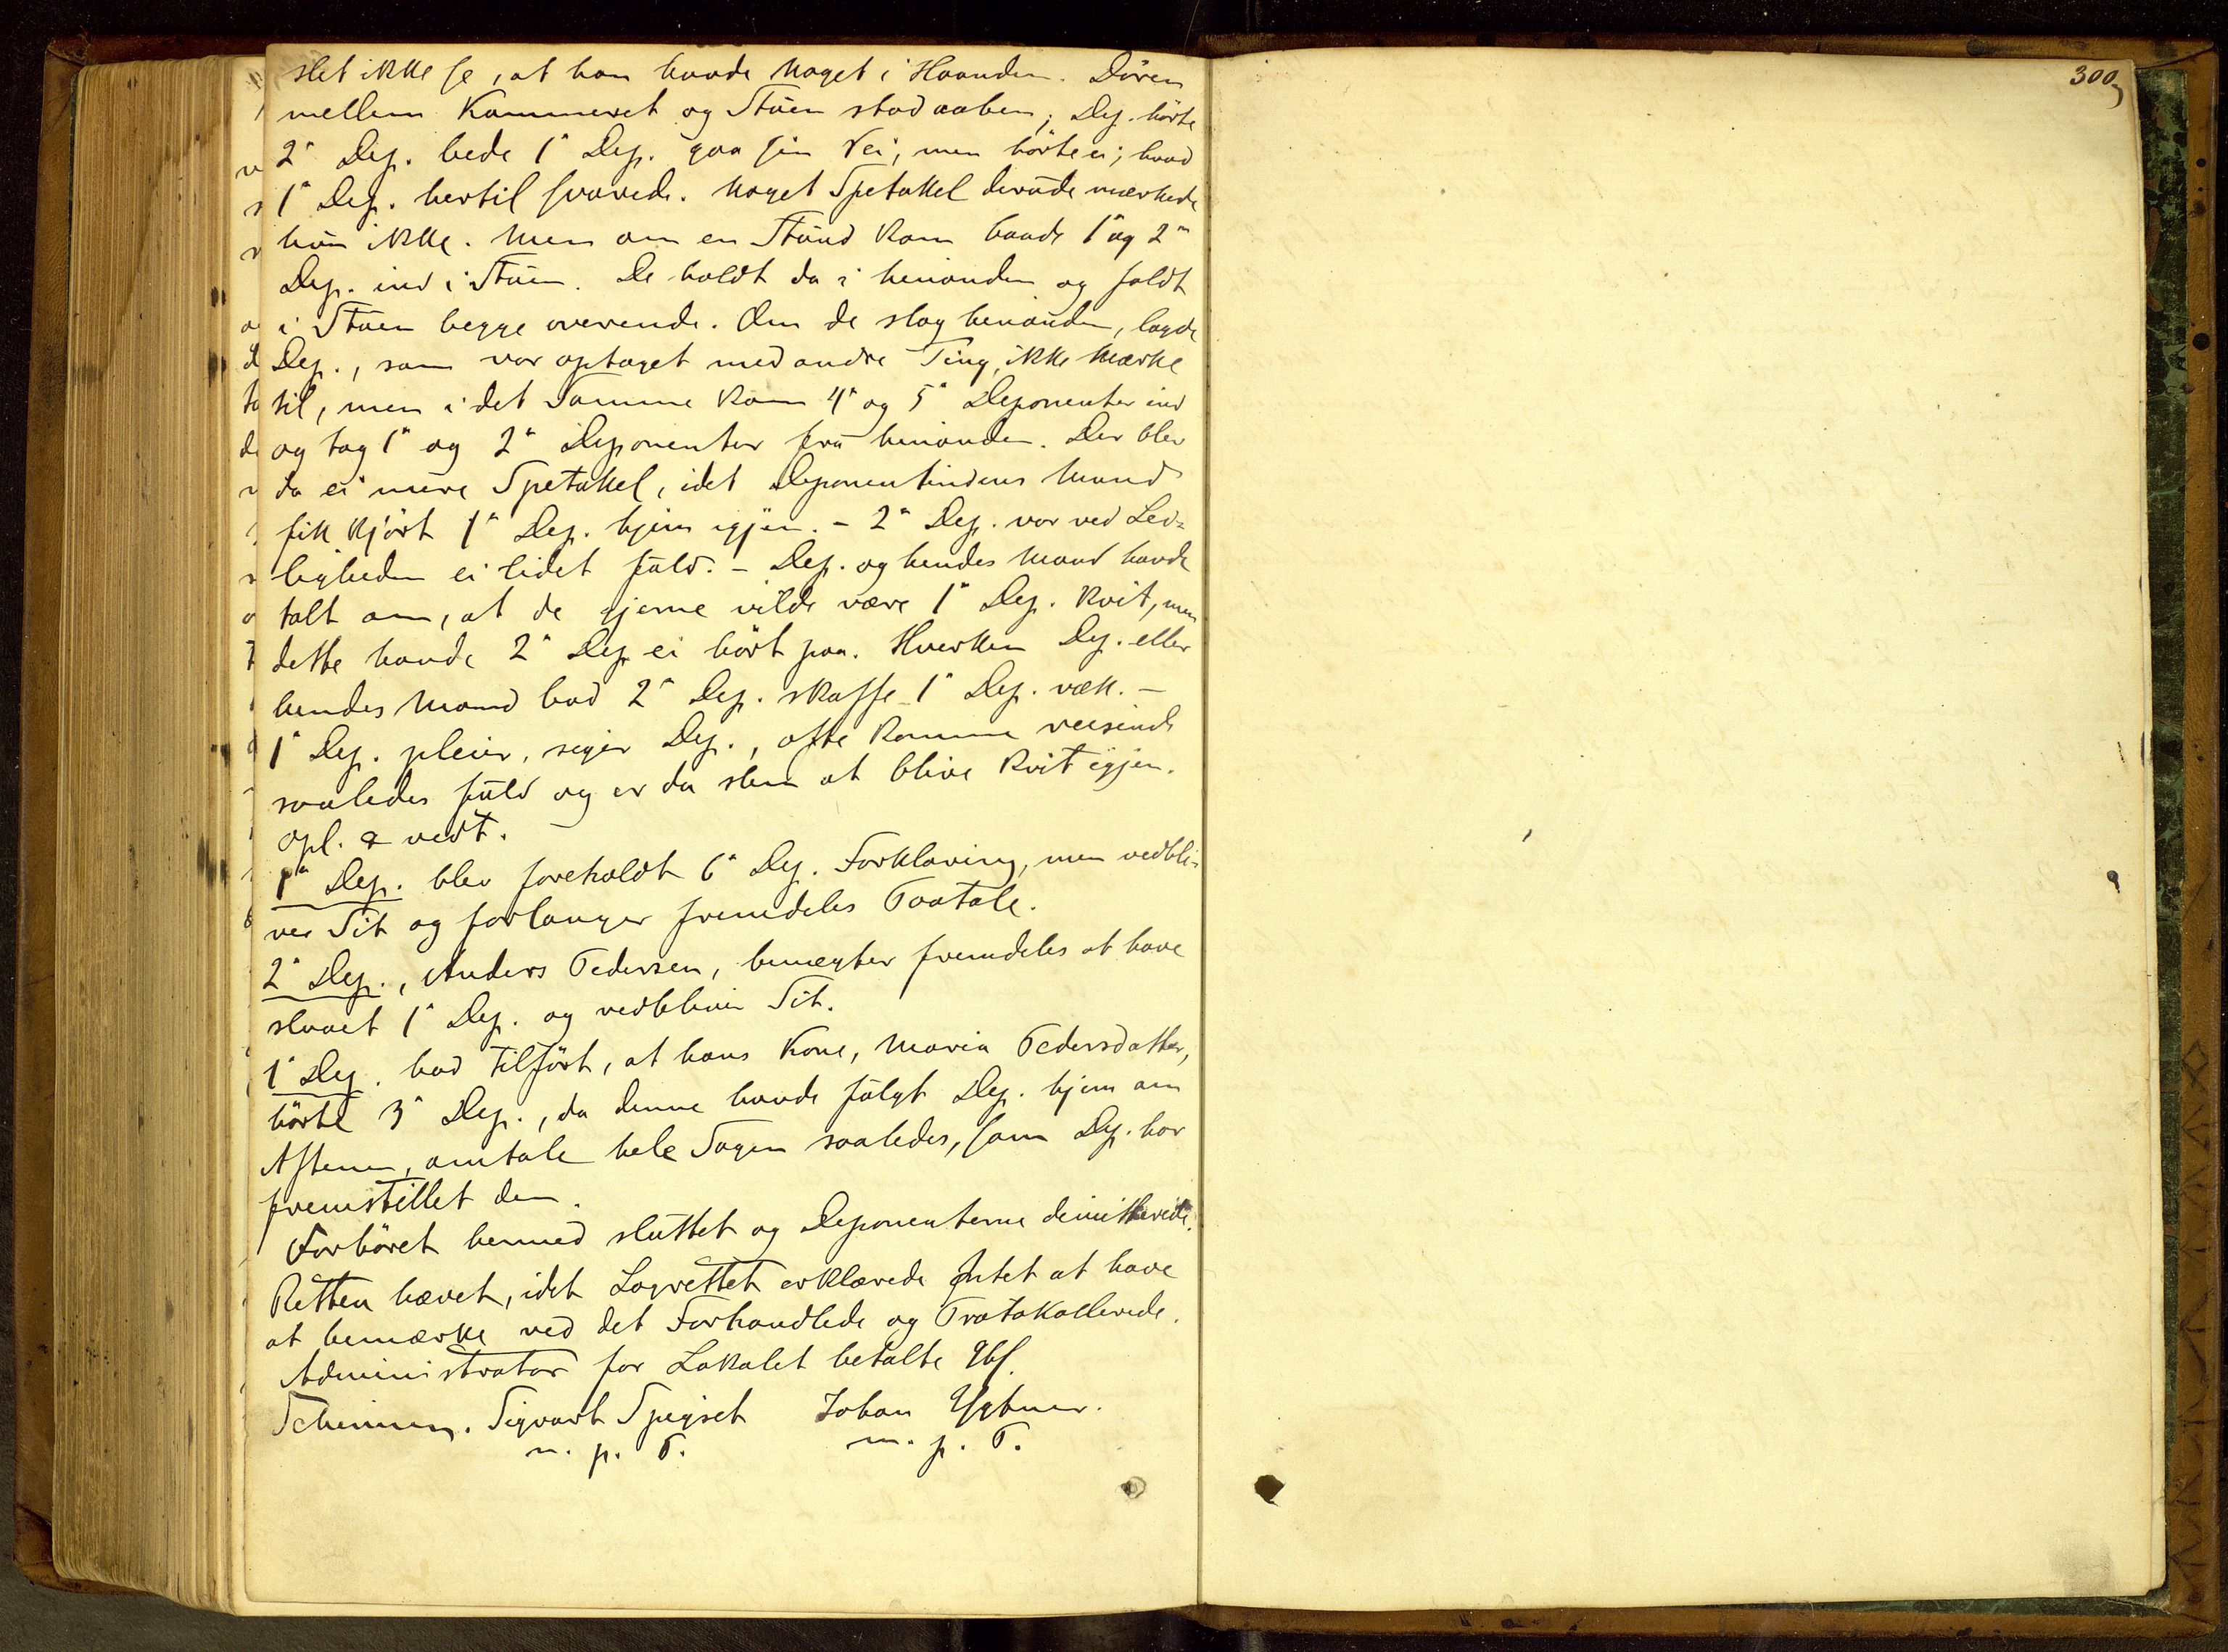 slet ikke se, at han havde Noget i Haanden. Døren
mellem Kammeret og Stuen stod aaben; Dep. hørte
2ᵈ Dep. bede 1ᵉ Dep. gaa sin Vei, men hørte ei, hvad
1ᵉ Dep. hertil svarede. Noget Spetakkel derude mærkede
hun ikke. Men om en Stund kom baade 1ᵉ og 2ᵈ
Dep. ind i Stuen. De holdt da i hinanden og faldt
i Stuen begge overende. Om de slog hinanden, lagde
Dep., som var optaget med andre Ting, ikke Mærke
til, men i det Samme kom 4ᵈ og 5ᵈ Deponenter ind
og tog 1ᵉ og 2ᵈ Deponenter fra hinanden. Der blev
da ei mere Spetakkel, idet Deponentindens Mand
fik kjørt 1ᵉ Dep. hjem igjen. - 2ᵈ Dep. var ved Lei-
ligheden ei lidet fuld. - Dep. og hendes Mand havde
talt om, at de gjerne vilde være 1ᵉ Dep. kvit, men
dette havde 2ᵈ Dep ei hørt paa. Hverken Dep. eller
hendes Mand bad 2ᵈ Dep. skaffe 1ᵉ Dep. væk. -
1ᵉ Dep. pleier, siger Dep., ofte komme reisende
saaledes fuld og er da slem at blive kvit igjen.
Opl. & vedt.
1ᵉ Dep. blev foreholdt 6ᵉ Dep. Forklaring, men vedbli-
ver Sit og forlanger fremdeles Paatale.
2ᵈ Dep., Anders Pedersen, benægter fremdeles at have
slaaet 1ᵉ Dep. og vedbliver Sit.
1ᵉ Dep. bad tilført, at hans Kone, Maria Pedersdatter,
hørte 3ᵉ Dep., da denne havde fulgt Dep. hjem om
Aftenen, omtale hele Sagen saaledes, som Dep. har
fremstillet den.
Forhøret hermed sluttet og Deponenterne demitterede.
Retten hævet, idet Lagrettet erklærede Intet at have
at bemærke ved det Forhandlede og Protokollerede.
Administrator for Lokalet betalte
Sigvart Spigset Johan
m. p. P. m. p. P.
300